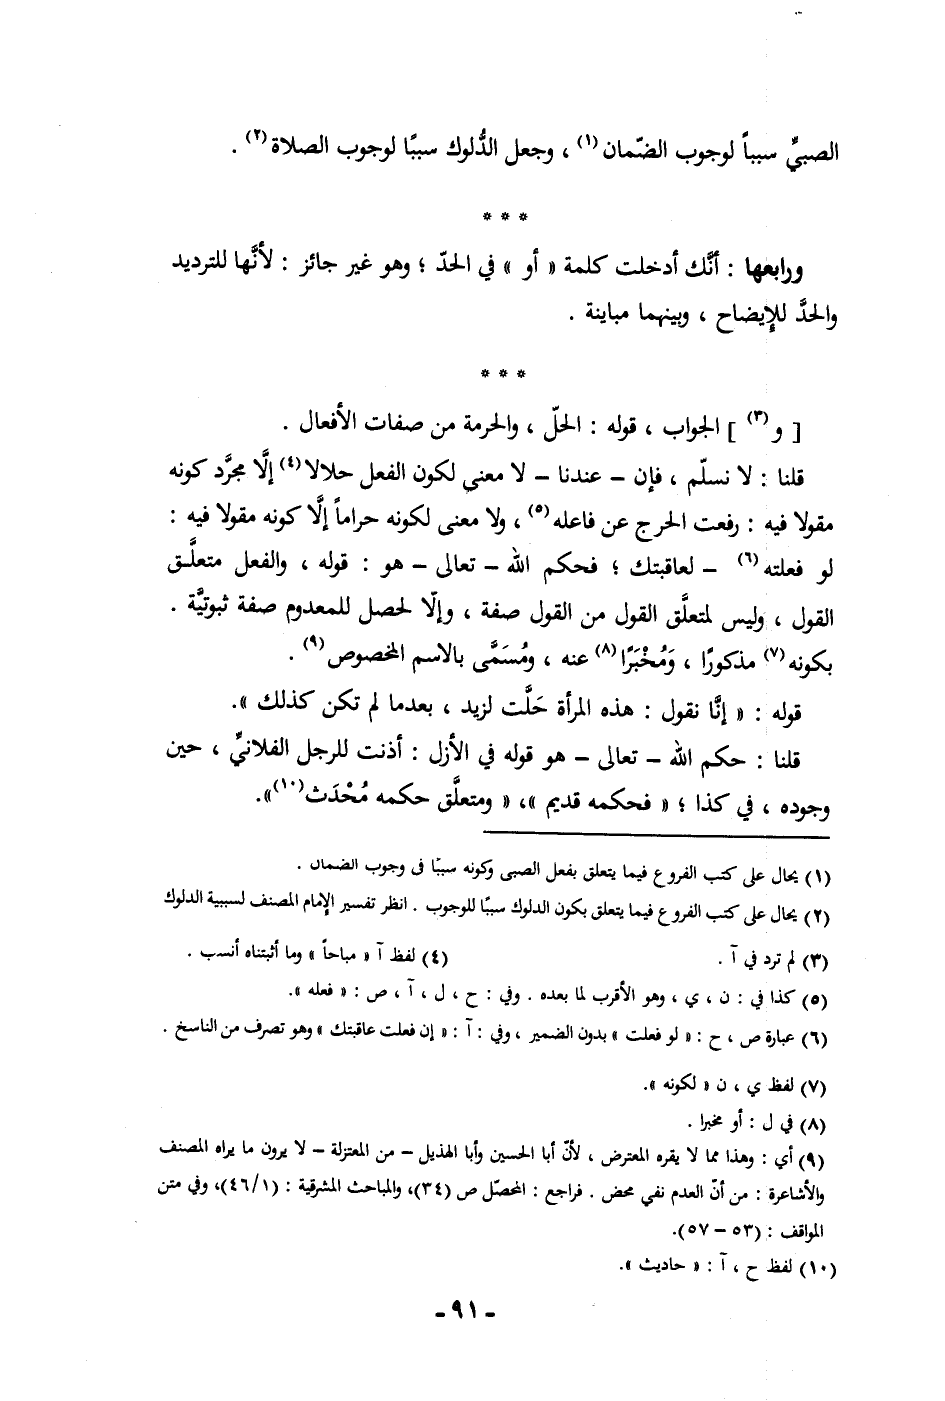 الصبيِّ سبباً لوجوب الضّمان(١) ، وجعل الدُّلوك سببًا لوجوب الصلاة(٢) .
* * *
ورابعها : أنَّك أدخلت كلمة « أو » في الحدّ ؛ وهو غير جائز : لأنَّها للترديد
والحدَّ للإيضاح ، وبينهما مباينة .
* * *
[ و(٣) ] الجواب ، قوله : الحلّ ، والحرمة من صفات الأفعال .
قلنا : لا نسلّم ، فإن – عندنا – لا معنى لكون الفعل حلالا(٤) إلَّا مجرَّد كونه
مقولا فيه : رفعت الحرج عن فاعله(٥) ، ولا معنى لكونه حراماً إلَّا كونه مقولا فيه :
لو فعلته(٦) – لعاقبتك ؛ فحكم الله – تعالى – هو : قوله ، والفعل متعلَّق
القول ، وليس لمتعلَّق القول من القول صفة ، وإلّا لحصل للمعدوم صفة ثبوتيَّة .
بكونه(٧) مذكورًا ، وَمُخْبَرًا(٨) عنه ، ومُسَمَّى بالاسم المخصوص(٩) .
قوله : « إنَّا نقول : هذه المرأة حَلَّت لزيد ، بعدما لم تكن كذلك ».
قلنا : حكم الله – تعالى – هو قوله في الأزل : أذنت للرجل الفلانيِّ ، حين
وجوده ، في كذا ؛ « فحكمه قديم »، « ومتعلَّق حكمه مُحْدَث(١٠)».
(١) يحال على كتب الفروع فيما يتعلق بفعل الصبى وكونه سببًا فى وجوب الضمان .
(٢) يحال على كتب الفروع فيما يتعلق بكون الدلوك سببًا للوجوب . انظر تفسير الإمام المصنف لسببية الدلوك
(٣) لم ترد في آ . (٤) لفظ آ « مباحاً » وما أثبتناه أنسب .
(٥) كذا في : ن ، ي ، وهو الأقرب لما بعده . وفي : ح ، ل ، آ ، ص : « فعله ».
(٦) عبارة ص ، ح : « لو فعلت » بدون الضمير ، وفي : آ : « إن فعلت عاقبتك » وهو تصرف من الناسخ .
(٧) لفظ ي ، ن « لكونه ».
(٨) في ل : أو مخبرا .
(٩) أي : وهذا مما لا يقره المعترض ، لأنّ أبا الحسين وأبا الهذيل – من المعتزلة – لا يرون ما يراه المصنف
والأشاعرة : من أنّ العدم نفي محض . فراجع : المحصّل ص (٣٤)، والمباحث المشرقية : (٤٦/١)، وفي متن
المواقف : (٥٣ – ٥٧).
(١٠) لفظ ح ، آ : « حاديث ».
- ٩١ -